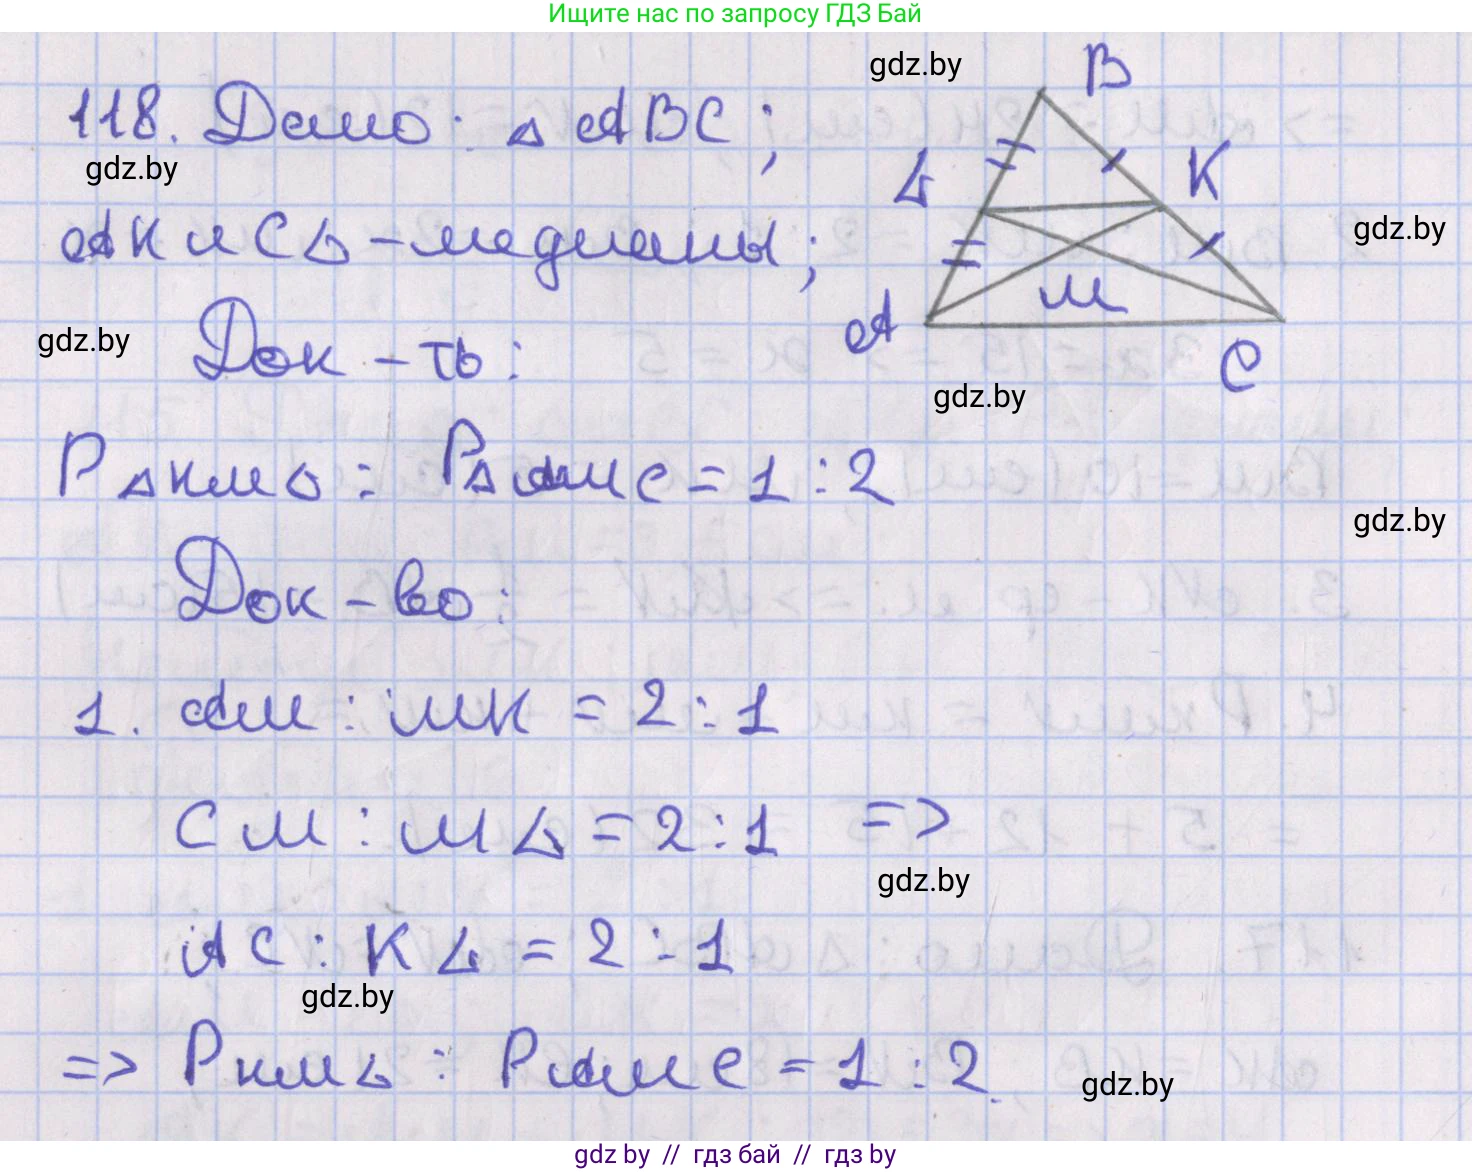 Ищите нас по запросу ГДЗ Бай
118. Дано: △ ABC;
gdz.by
B
gdz.by
AK и CL - медианы;
L
K
gdz.by
M
A
C
gdz.by
Док - ть:
gdz.by
P△KML : P△AMC = 1 : 2
gdz.by
Док - во:
1. AM : MK = 2 : 1
CM : ML = 2 : 1 =>
gdz.by
AC : KL = 2 : 1
gdz.by
=> PKML : PAMC = 1 : 2.
gdz.by
gdz by // гдз бай // гдз by